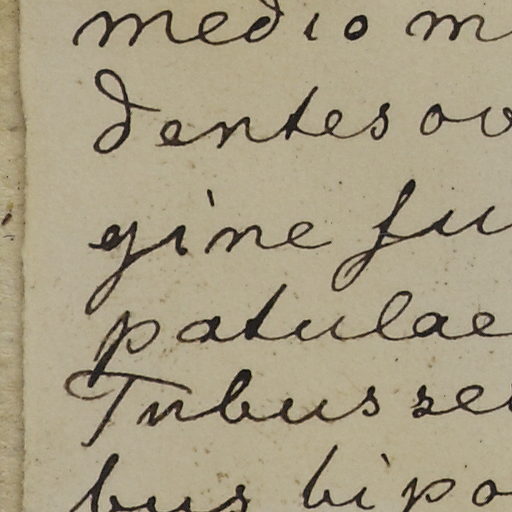 medio m
dentes ov
gine fu
patulae
Tubus se
bus bipo